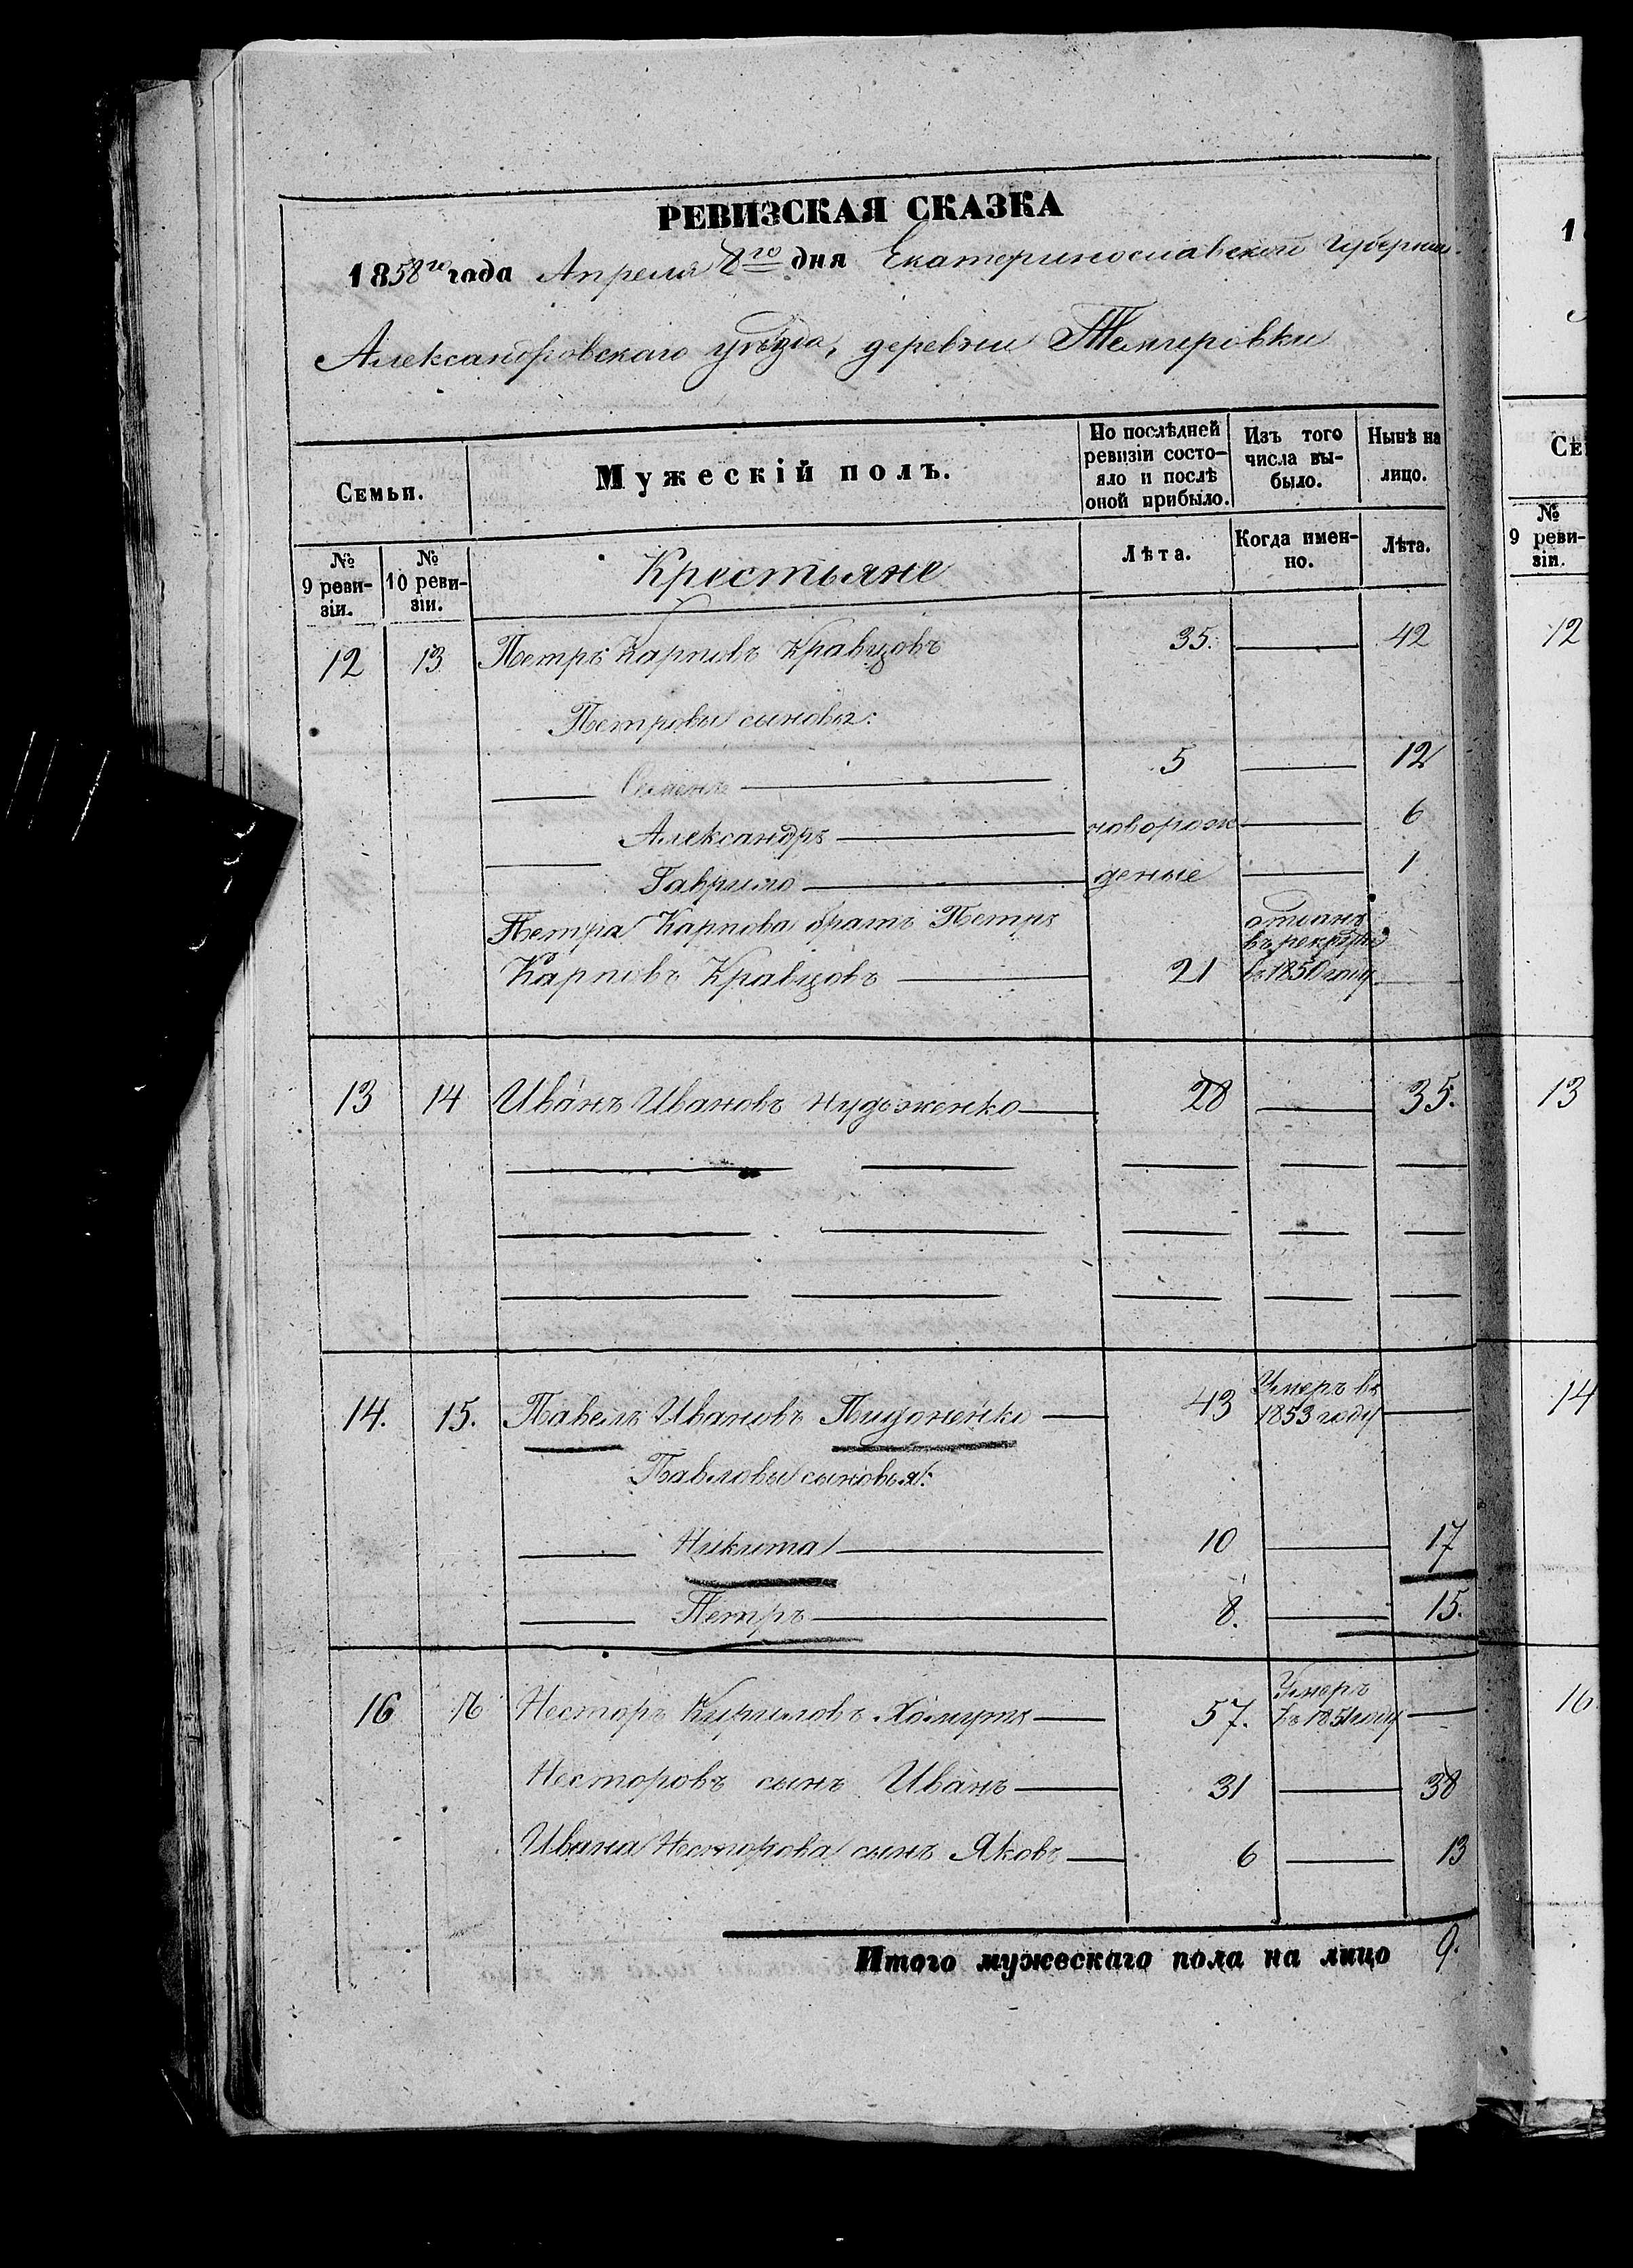 РЕВИЗСКАЯ СКАЗКА
1858го года Апреля 8го дня Екатеринославской Губернии
Александровскаго уѣзда, деревни Темировки
Семьи.
Мужескій полъ.
По послѣдней ревизіи состо-
яло и послѣ
оной прибыло.
Изъ того
числа вы-
было.
Нынѣ на
лицо.
№
9 реви-
зіи.
№
10 реви-
зіи.
Крестьяне
Лѣта.
Когда имен-
но.
Лѣта.
12 13 Петръ Карповъ Кравцовъ 35. 42
Петровы сыновья:
Семенъ 5 12
Александръ новорож 6
Гаврило деные 1
Петра Карпова братъ Петръ отданъ
въ рекруты
Карповъ Кравцовъ 21 въ 1850 году
13 14 Иванъ Ивановъ 28 35.
14. 15. Павелъ Ивановъ 43 Умеръ въ
1853 году
Павловы сыновья:
Никита 10 17
Петръ 8. 15.
16 16 Несторъ Кириловъ 57. Умеръ
въ 1851 году
Несторовъ сынъ Иванъ 31 38
Ивана Несторова сынъ Яковъ 6 13
Итого мужескаго пола на лицо 9.
1
Се
№
9 реви-
зіи.
12
13
14
16